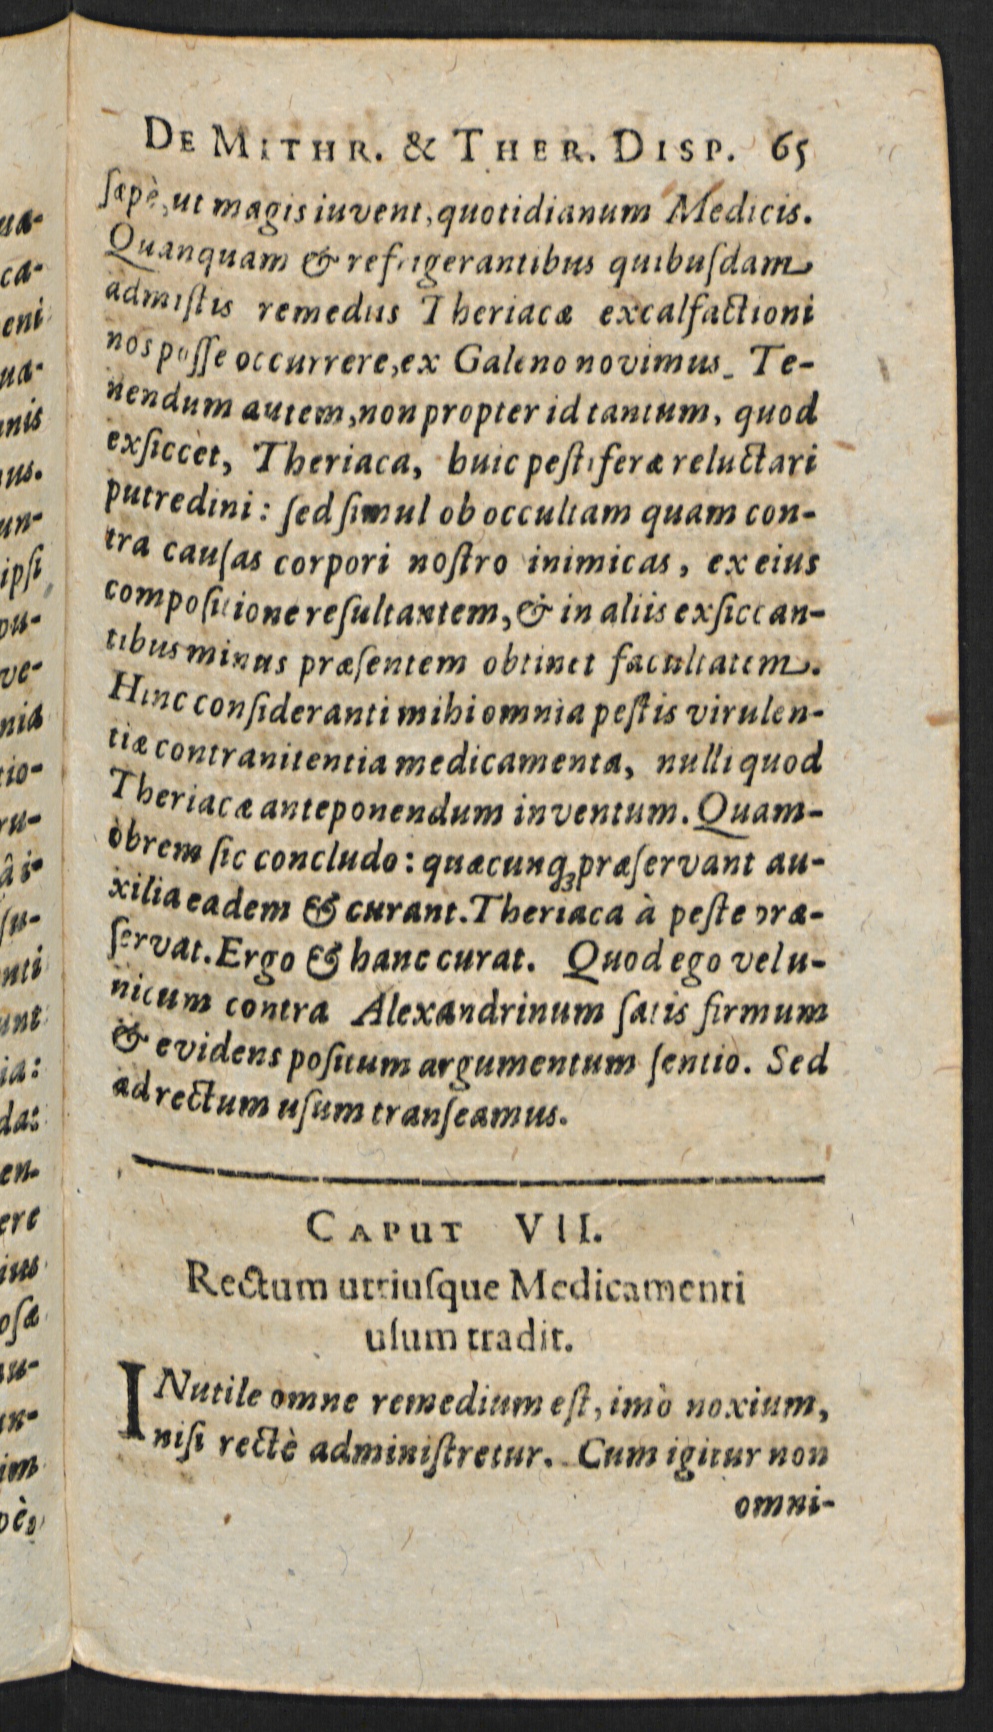 DE MITHR. & THER. DISP. 65
ſæpè, ut magis iuvent, quotidianum Medicis.
Quanquam & refrigerantibus quibuſdam
admiſtis remediis Theriacæ excalfactioni
nos poſſe occurrere, ex Galeno novimus. Te-
nendum autem, non propter id tantum, quod
exſiccet, Theriaca, huic peſtiferæ reluctari
putredini: ſed ſimul ob occultam quam con-
tra cauſas corpori noſtro inimicas, ex eius
compoſitione reſultantem, & in aliis exſiccan-
tibus minus præſentem obtinet facultatem.
Hinc conſideranti mihi omnia peſtis virulen-
tiæ contranitentia medicamenta, nulli quod
Theriacæ anteponendum inventum. Quam-
obrem ſic concludo: quæcunq; præſervant au-
xilia eadem & curant. Theriaca à peſte præ-
ſervat. Ergo & hanc curat. Quod ego vel u-
nicum contra Alexandrinum ſatis firmum
& evidens poſitum argumentum ſentio. Sed
ad rectum uſum tranſeamus.
CAPUT VII.
Rectum utriuſque Medicamenti
uſum tradit.
INutile omne remedium eſt, imò noxium,
niſi rectè adminiſtretur. Cum igitur non
omni-
ua-
ca-
eni
ua-
nnis
us.
un-
ipſi
pu-
ve-
nia
tio-
ru-
â i-
ſu-
nti
unt
ia:
da:
en-
ere
ius
oſæ
au-
un-
im
pè,